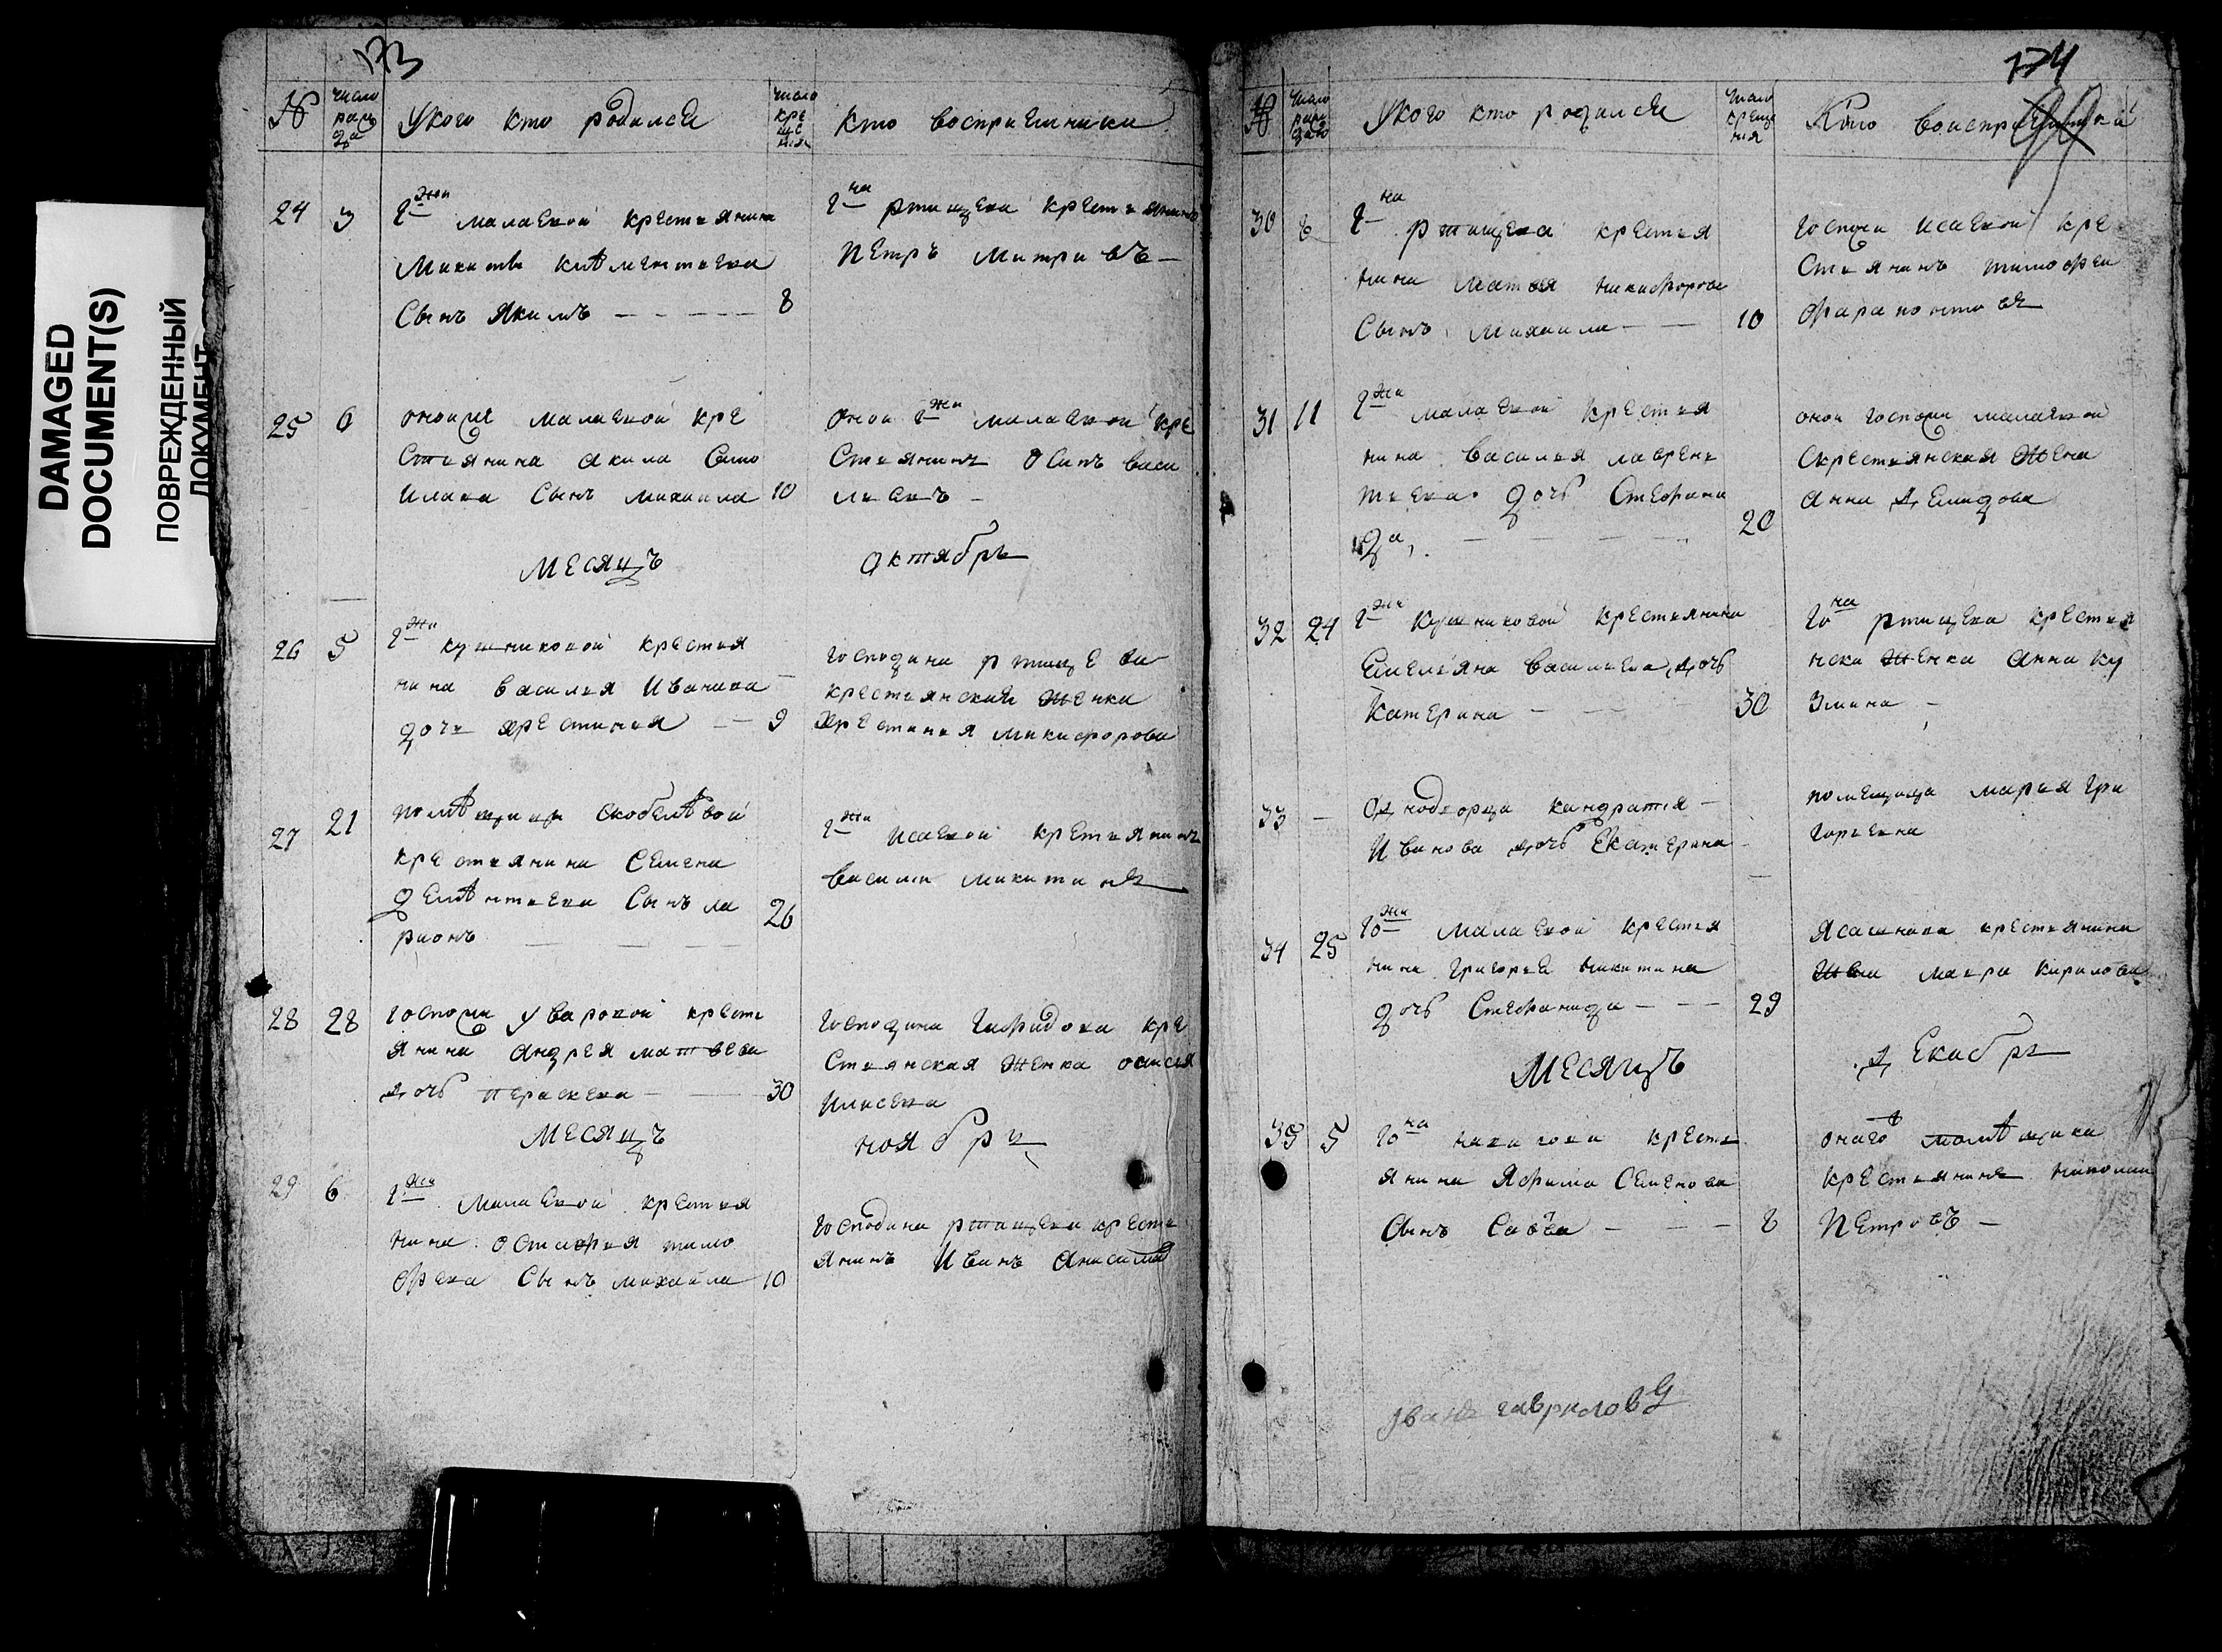 DAMAGED
DOCUMENT(S)
ПОВРЕЖДЕННЫЙ
ДОКУМЕНТ
173
№
число
рож
да
Укого кто родился
число
кре
ще
ния
Кто восприемники
24 3
г-жи малаевой крестьянина
Микиты климентьева
Сынъ Якимъ 8
г-на ртищева крестьянинъ
Петръ Митривъ
25 6
оноиже малаевой кре
стьянина акима само
илава Сынъ михаила 10
Оной г-жи малаевой кре
стьянинъ Осипъ васи
льевъ
Месяцъ октябрь
26 5
г-жи кушниковой крестья
нина василья Иванова
дочь хрестинья 9
господина ртищева
крестьянская женка
Хрестинья микифорова
27 21
помѣщицы скобелѣвой
крестьянина Семена
демѣнтьева Сынъ ла
рионъ 26
г-жи исаевой крестьянинъ
василеи микитинъ
28 28
госпожи уваровой кресть
янина андрея матвеева
дочь пераскева 30
Господина кре
стьянская женка
илисева
Месяцъ ноябрь
29 6
г-жи малаевой крестья
нина остафья тимо
феева Сынъ михайла 10
Господина ртищева кресть
янинъ Иванъ Анасимов
174
№
Число
рож
дено
Укого кто родился
Число
креще
ния
Кто
30 8
г-на ртищева крестья
нина матвея никифорова
Сынъ михаила 10
Госпожи исаевой кре
стьянинъ тимофеи
Фарапонтовъ
31 11
г-жи малаевой крестья
нина Василья лаврень
тьева дочь Стефани
да 20
оной госпожи малаевой
крестьянская жена
анна Демидова
32 24
г-жи Кушниковой крестьянина
Емельяна Васильева дочь
Катерина 30
го-на ртищева крестья
нска женка анна ку
змина
33 –
Однодворца кандратья
Иванова дочь Екатерина
помещица марья гри
горьевна
34 25
го-жи малаевой крестья
нина григорья никитина
дочь Стефанида 29
Ясашнова крестьянина
жена мавра кирилова
Месяцъ Декабрь
35 5
го-на кресть
янина Яфима Семенова
Сынъ Савва 8
онаго помѣщика
крестьянинъ николаи
Петровъ
иванъ гавриловъ